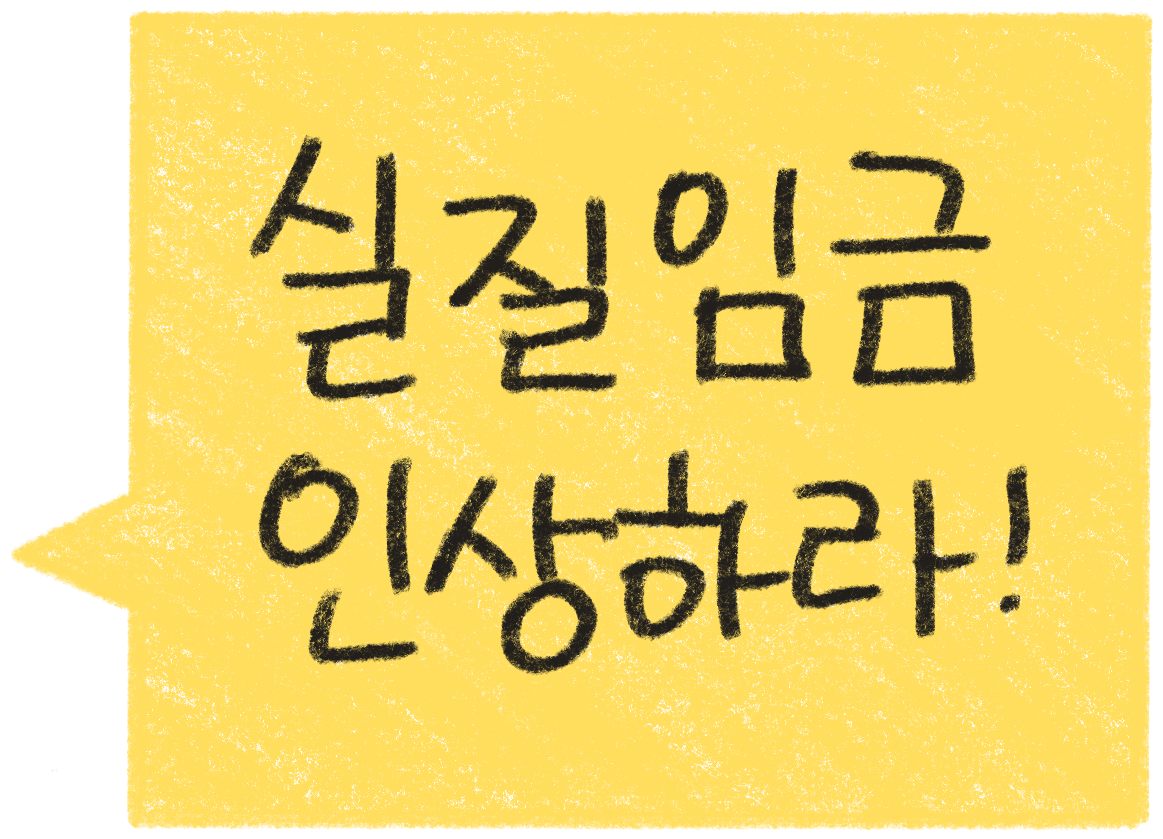 실질임금
인상하라!